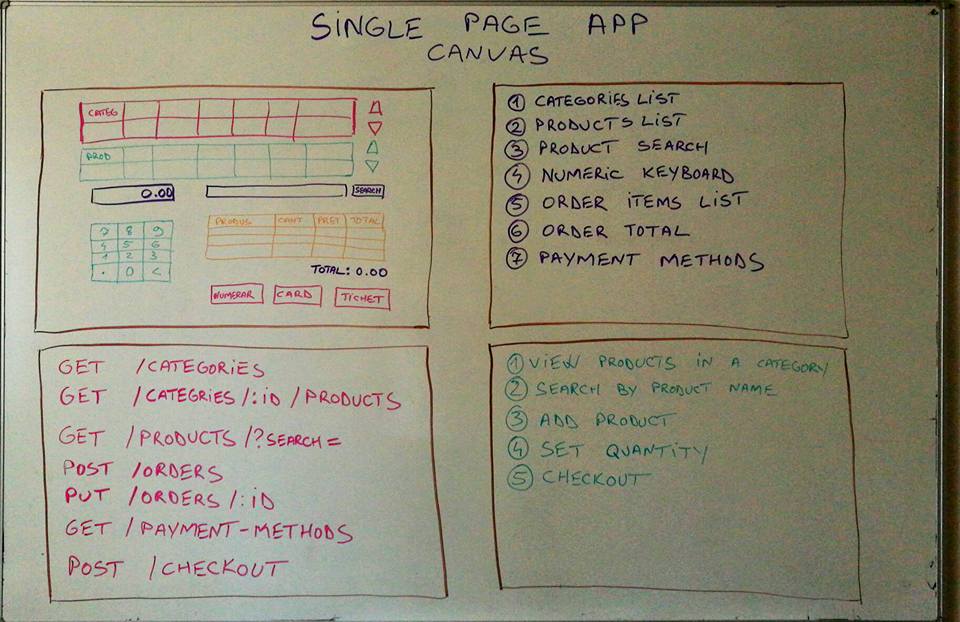 SiNGLE PAGE APP
CANVAS
CATEG
PROD
0.00
SEARCH
7 8 9
4 5 6
1 2 3
. 0 <
PRODUS CANT PRET TOTAL
TOTAL: 0.00
NUMERAR CARD TICHET
1 CATEGORiES LiST
2 PRODUCTS LiST
3 PRODUCT SEARCH
4 NUMERiC KEYBOARD
5 ORDER iTEMS LiST
6 ORDER TOTAL
7 PAYMENT METHODS
GET /CATEGORiES
GET /CATEGRiES/:iD/PRODUCTS
GET /PRODUCTS/?SEARCH=
POST /ORDERS
PUT /ORDERS/:iD
GET /PAYMENT-METHODS
POST /CHECKOUT
1 ViEW PRODUCTS iN A CATEGORY
2 SEARCH BY PRODUCT NAME
3 ADD PRODUCT
4 SET QUANTiTY
5 CHECKOUT